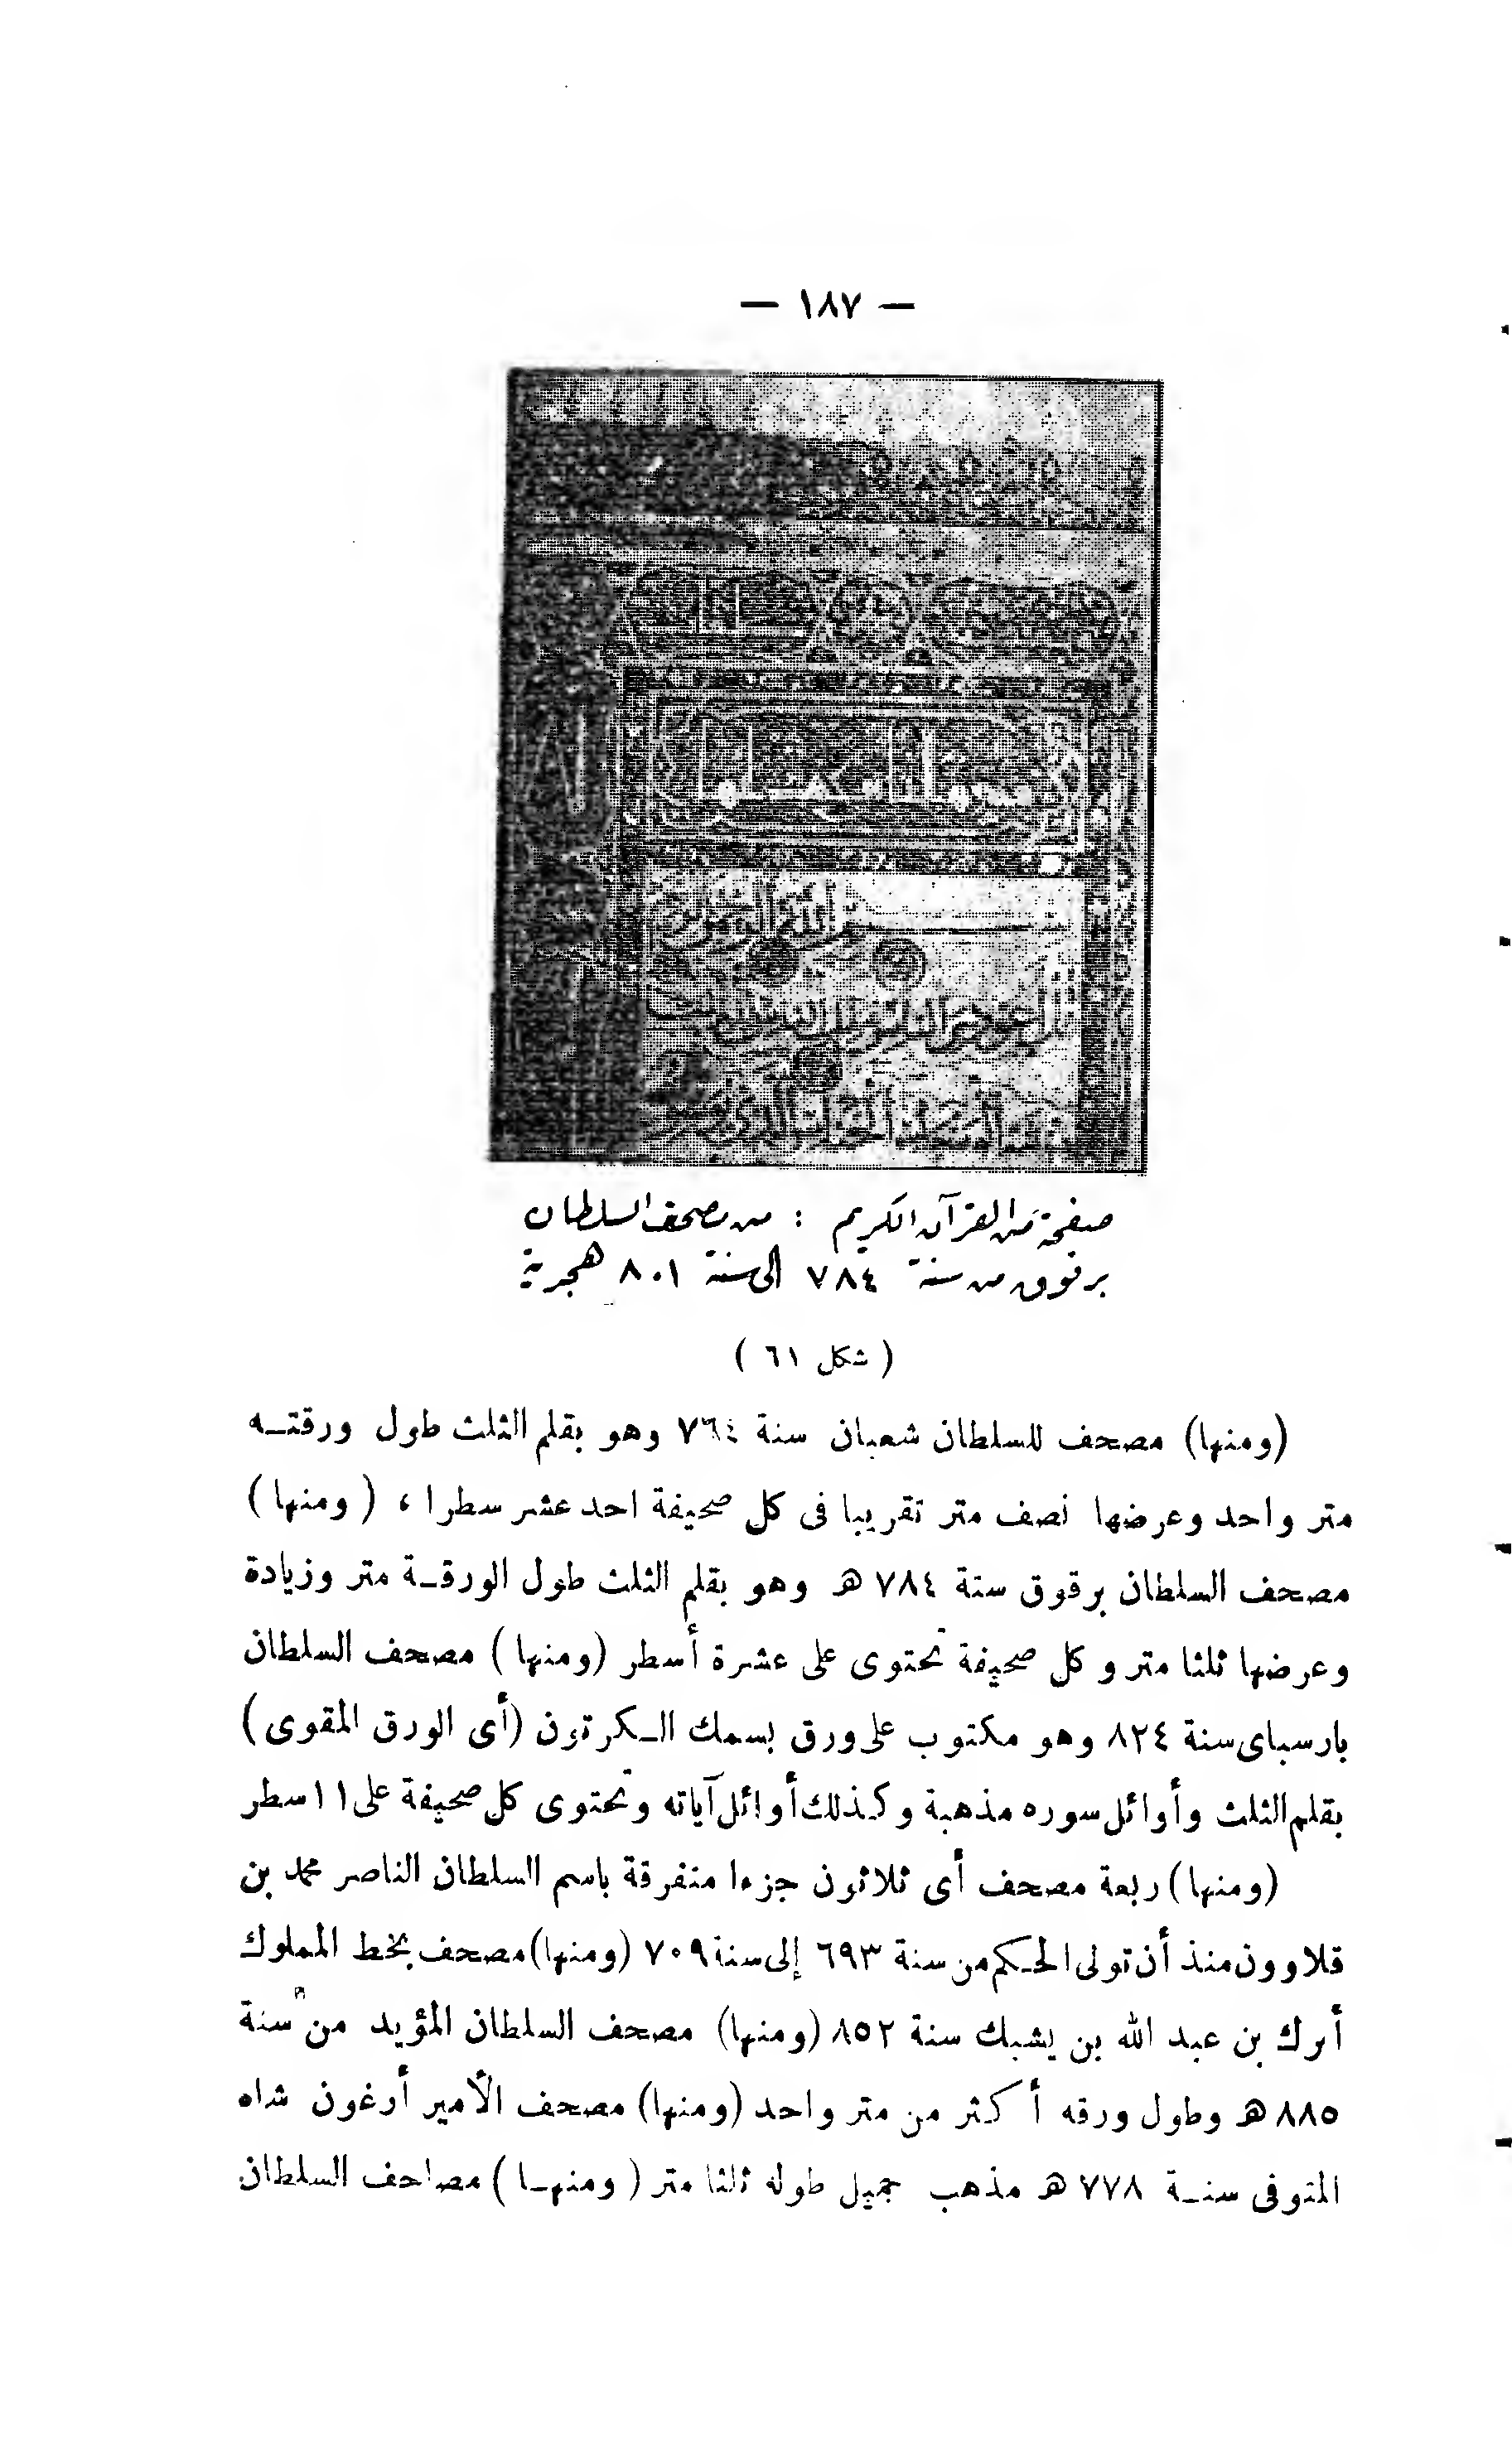 — ١٨٧ —
صفحة من القرآن الكريم : من مصحف السلطان
برقوق من سنة ٧٨٤ الى سنة ٨٠١ هجرية
( شكل ٦١ )
(ومنها) مصحف للسلطان شعبان سنة ٧٦٤ وهو بقلم الثلث طول ورقتـه
متر واحد وعرضها نصف متر تقريبا فى كل صحيفة احد عشر سطرا ، ( ومنها )
مصحف السلطان برقوق سنة ٧٨٤ هـ وهو بقلم الثلث طول الورقـة متر وزيادة
وعرضها ثلثا متر وكل صحيفة تحتوى على عشرة أسطر (ومنها ) مصحف السلطان
بارسباى سنة ٨٢٤ وهو مكتوب على ورق بسمك الـكرتون (أى الورق المقوى )
بقلم الثلث وأوائل سوره مذهبة وكذلك أوائل آياته وتحتوى كل صحيفة على ١١ سطر
(ومنها ) ربعة مصحف أى ثلاثون جزءا متفرقة باسم السلطان الناصر محمد بن
قلاوون منذ أن تولى الحـكم من سنة ٦٩٣ إلى سنة ٧٠٩ (ومنها) مصحف بخط المملوك
بن عبد الله بن يشبك سنة ٨٥٢ (ومنها) مصحف السلطان المؤيد من سنة
٨٨٥ هـ وطول ورقه أكثر من متر واحد (ومنها) مصحف الأمير أرغون شاه
المتوفى سنـة ٧٧٨ هـ مذهب جميل طوله ثلثا متر ( ومنهـا ) مصاحف السلطان